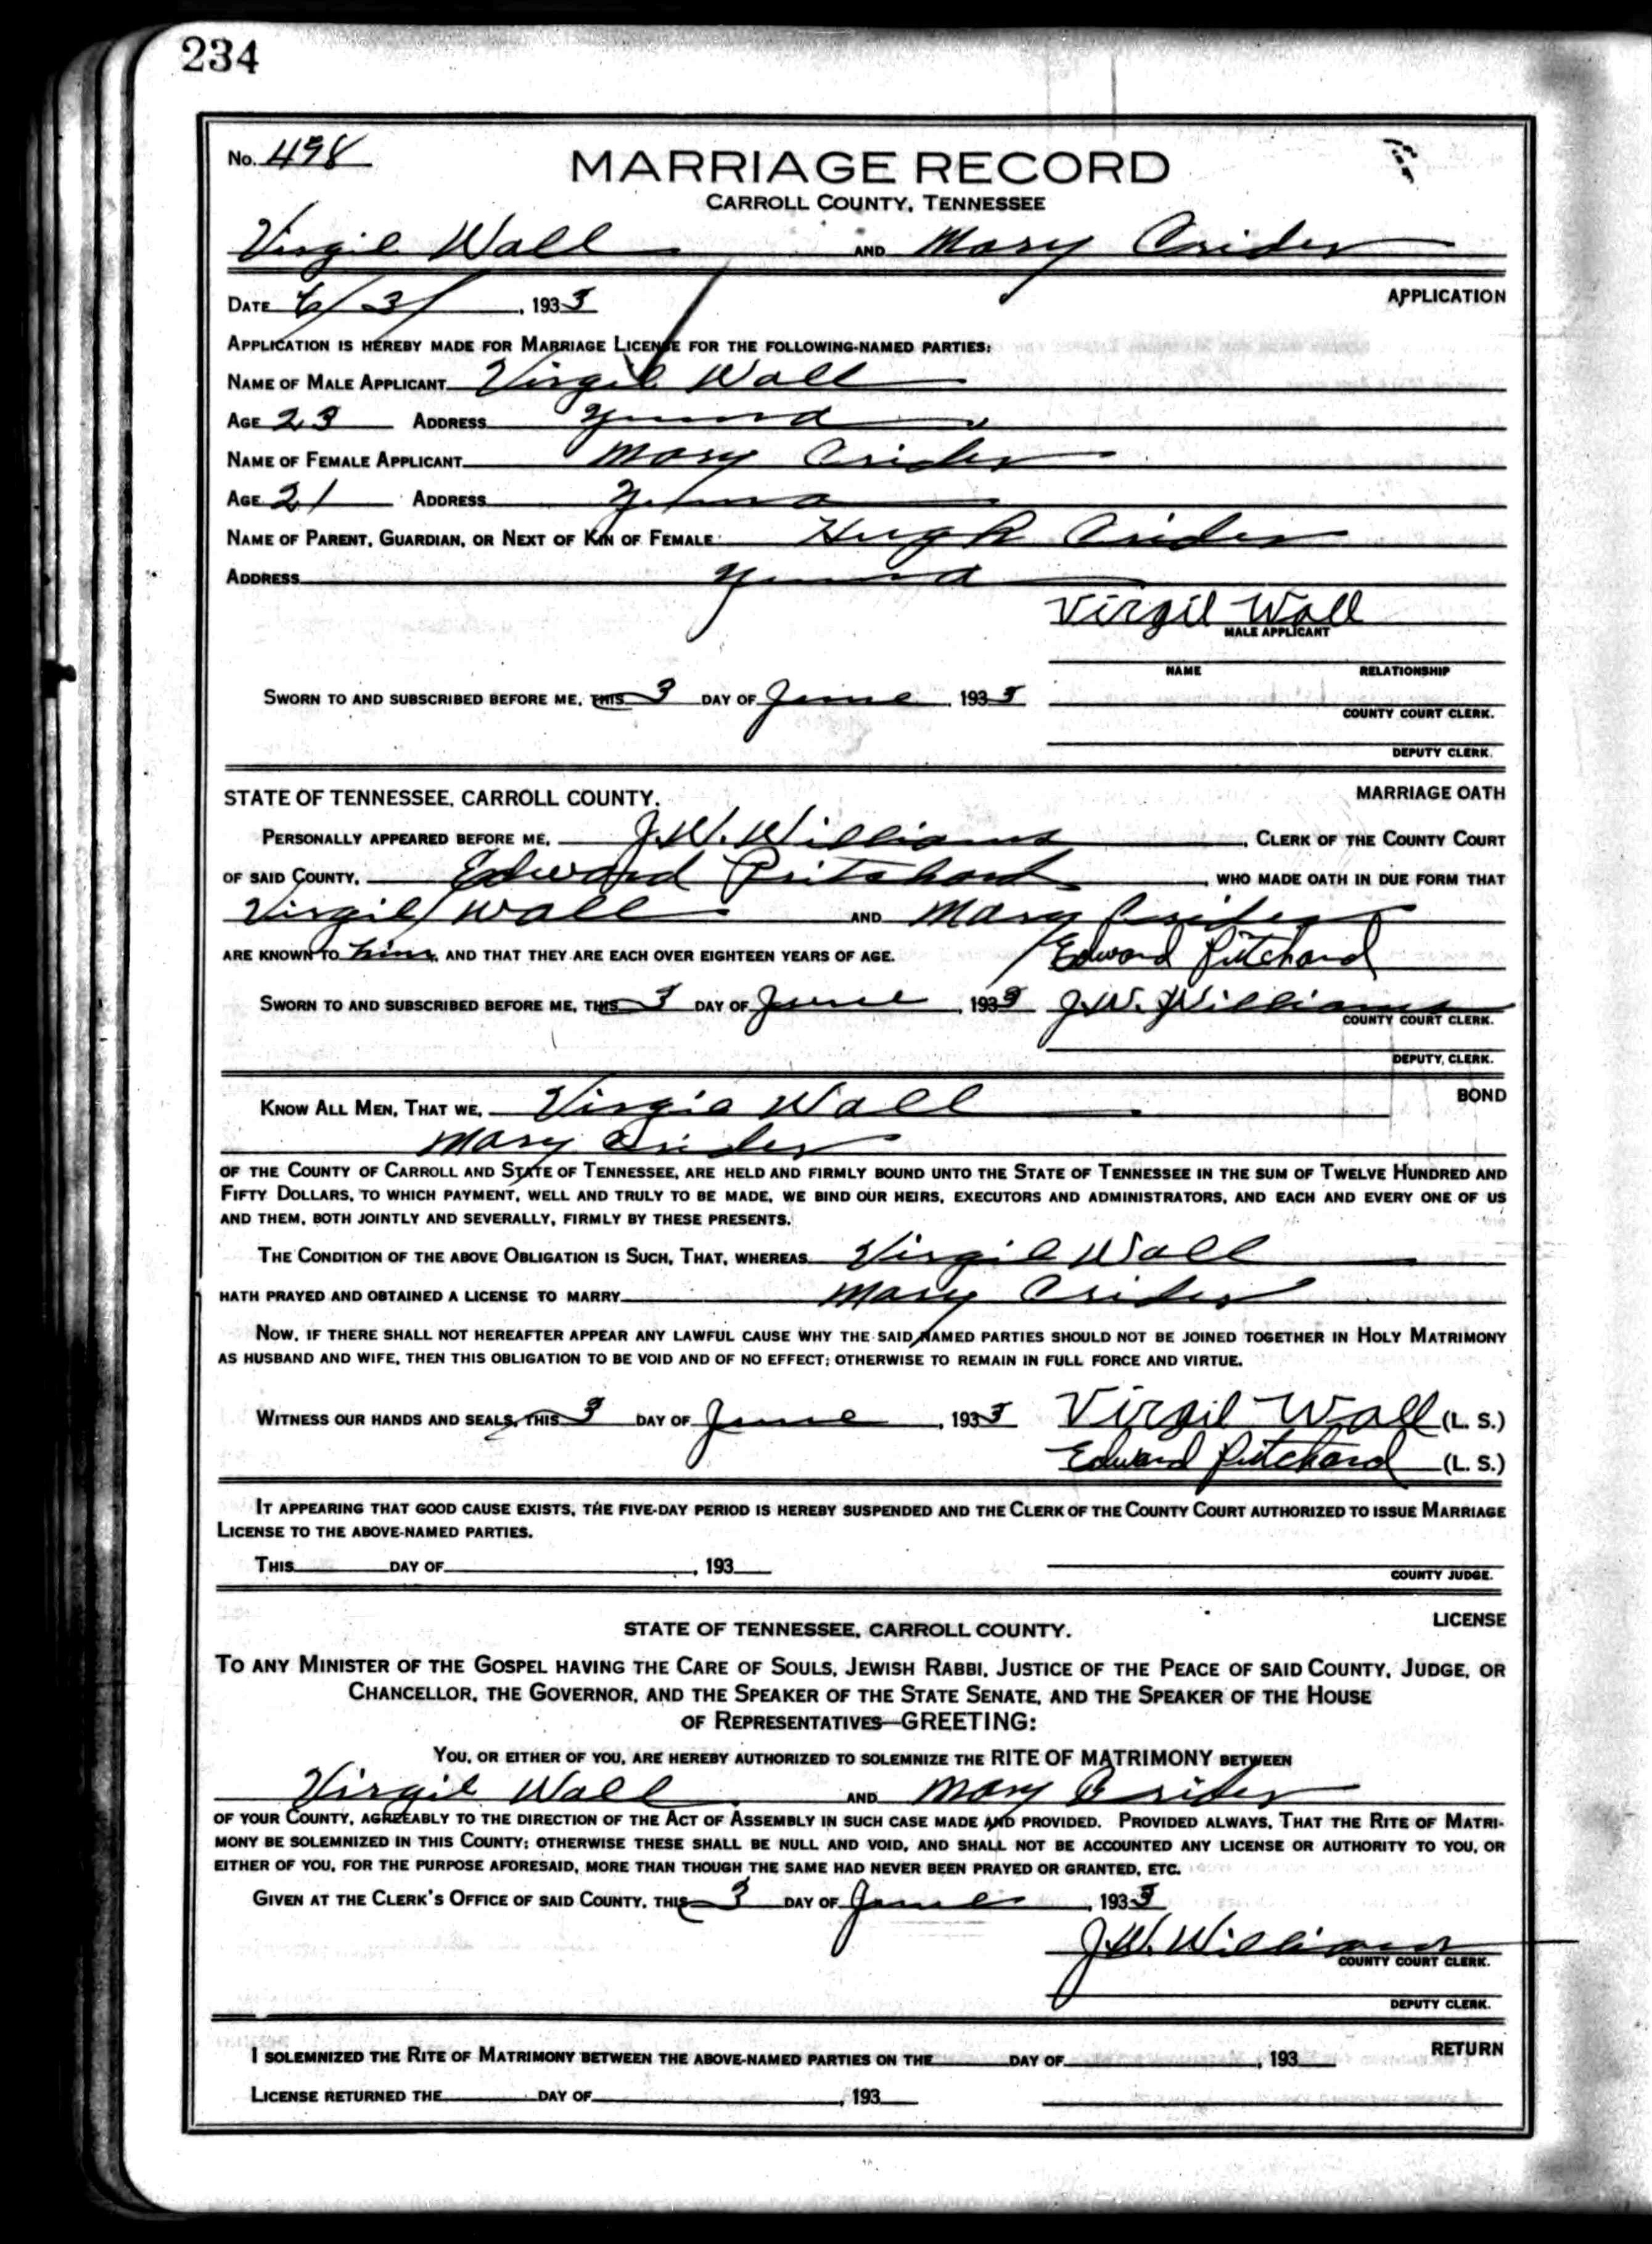 234
No. 498
MARRIAGE RECORD
CARROLL COUNTY, TENNESSEE
Virgil Wall AND Mary Crider
DATE 6/3/, 1933 APPLICATION
APPLICATION IS HEREBY MADE FOR MARRIAGE LICENSE FOR THE FOLLOWING-NAMED PARTIES:
NAME OF MALE APPLICANT Virgil Wall
AGE 23 ADDRESS Yuma
NAME OF FEMALE APPLICANT Mary Crider
AGE 21 ADDRESS Yuma
NAME OF PARENT, GUARDIAN, OR NEXT OF KIN OF FEMALE: Hugh Crider
ADDRESS Yuma
Virgil Wall
MALE APPLICANT
NAME RELATIONSHIP
SWORN TO AND SUBSCRIBED BEFORE ME, THIS 3 DAY OF June, 1933
COUNTY COURT CLERK.
DEPUTY CLERK.
STATE OF TENNESSEE, CARROLL COUNTY. MARRIAGE OATH
PERSONALLY APPEARED BEFORE ME, J.W. Williams, CLERK OF THE COUNTY COURT
OF SAID COUNTY, Edward Pritchard, WHO MADE OATH IN DUE FORM THAT
Virgil Wall AND Mary Crider
ARE KNOWN TO him, AND THAT THEY ARE EACH OVER EIGHTEEN YEARS OF AGE. Edward Pritchard
SWORN TO AND SUBSCRIBED BEFORE ME, THIS 3 DAY OF June, 1933 J.W. Williams
COUNTY COURT CLERK.
DEPUTY CLERK.
BOND
KNOW ALL MEN, THAT WE, Virgil Wall
Mary Crider
OF THE COUNTY OF CARROLL AND STATE OF TENNESSEE, ARE HELD AND FIRMLY BOUND UNTO THE STATE OF TENNESSEE IN THE SUM OF TWELVE HUNDRED AND
FIFTY DOLLARS, TO WHICH PAYMENT, WELL AND TRULY TO BE MADE, WE BIND OUR HEIRS, EXECUTORS AND ADMINISTRATORS, AND EACH AND EVERY ONE OF US
AND THEM, BOTH JOINTLY AND SEVERALLY, FIRMLY BY THESE PRESENTS.
THE CONDITION OF THE ABOVE OBLIGATION IS SUCH, THAT, WHEREAS Virgil Wall
HATH PRAYED AND OBTAINED A LICENSE TO MARRY Mary Crider
NOW, IF THERE SHALL NOT HEREAFTER APPEAR ANY LAWFUL CAUSE WHY THE SAID NAMED PARTIES SHOULD NOT BE JOINED TOGETHER IN HOLY MATRIMONY
AS HUSBAND AND WIFE, THEN THIS OBLIGATION TO BE VOID AND OF NO EFFECT; OTHERWISE TO REMAIN IN FULL FORCE AND VIRTUE.
WITNESS OUR HANDS AND SEALS, THIS 3 DAY OF June, 1933 Virgil Wall (L. S.)
Edward Pritchard (L. S.)
IT APPEARING THAT GOOD CAUSE EXISTS, THE FIVE-DAY PERIOD IS HEREBY SUSPENDED AND THE CLERK OF THE COUNTY COURT AUTHORIZED TO ISSUE MARRIAGE
LICENSE TO THE ABOVE-NAMED PARTIES.
THIS DAY OF, 193
COUNTY JUDGE.
LICENSE
STATE OF TENNESSEE, CARROLL COUNTY.
TO ANY MINISTER OF THE GOSPEL HAVING THE CARE OF SOULS, JEWISH RABBI, JUSTICE OF THE PEACE OF SAID COUNTY, JUDGE, OR
CHANCELLOR, THE GOVERNOR, AND THE SPEAKER OF THE STATE SENATE, AND THE SPEAKER OF THE HOUSE
OF REPRESENTATIVES—GREETING:
YOU, OR EITHER OF YOU, ARE HEREBY AUTHORIZED TO SOLEMNIZE THE RITE OF MATRIMONY BETWEEN
Virgil Wall AND Mary Crider
OF YOUR COUNTY, AGREEABLY TO THE DIRECTION OF THE ACT OF ASSEMBLY IN SUCH CASE MADE AND PROVIDED. PROVIDED ALWAYS, THAT THE RITE OF MATRI-
MONY BE SOLEMNIZED IN THIS COUNTY; OTHERWISE THESE SHALL BE NULL AND VOID, AND SHALL NOT BE ACCOUNTED ANY LICENSE OR AUTHORITY TO YOU, OR
EITHER OF YOU, FOR THE PURPOSE AFORESAID, MORE THAN THOUGH THE SAME HAD NEVER BEEN PRAYED OR GRANTED, ETC.
GIVEN AT THE CLERK'S OFFICE OF SAID COUNTY, THIS 3 DAY OF June, 1933
J.W. Williams
COUNTY COURT CLERK.
DEPUTY CLERK.
RETURN
I SOLEMNIZED THE RITE OF MATRIMONY BETWEEN THE ABOVE-NAMED PARTIES ON THE DAY OF, 193
LICENSE RETURNED THE DAY OF, 193